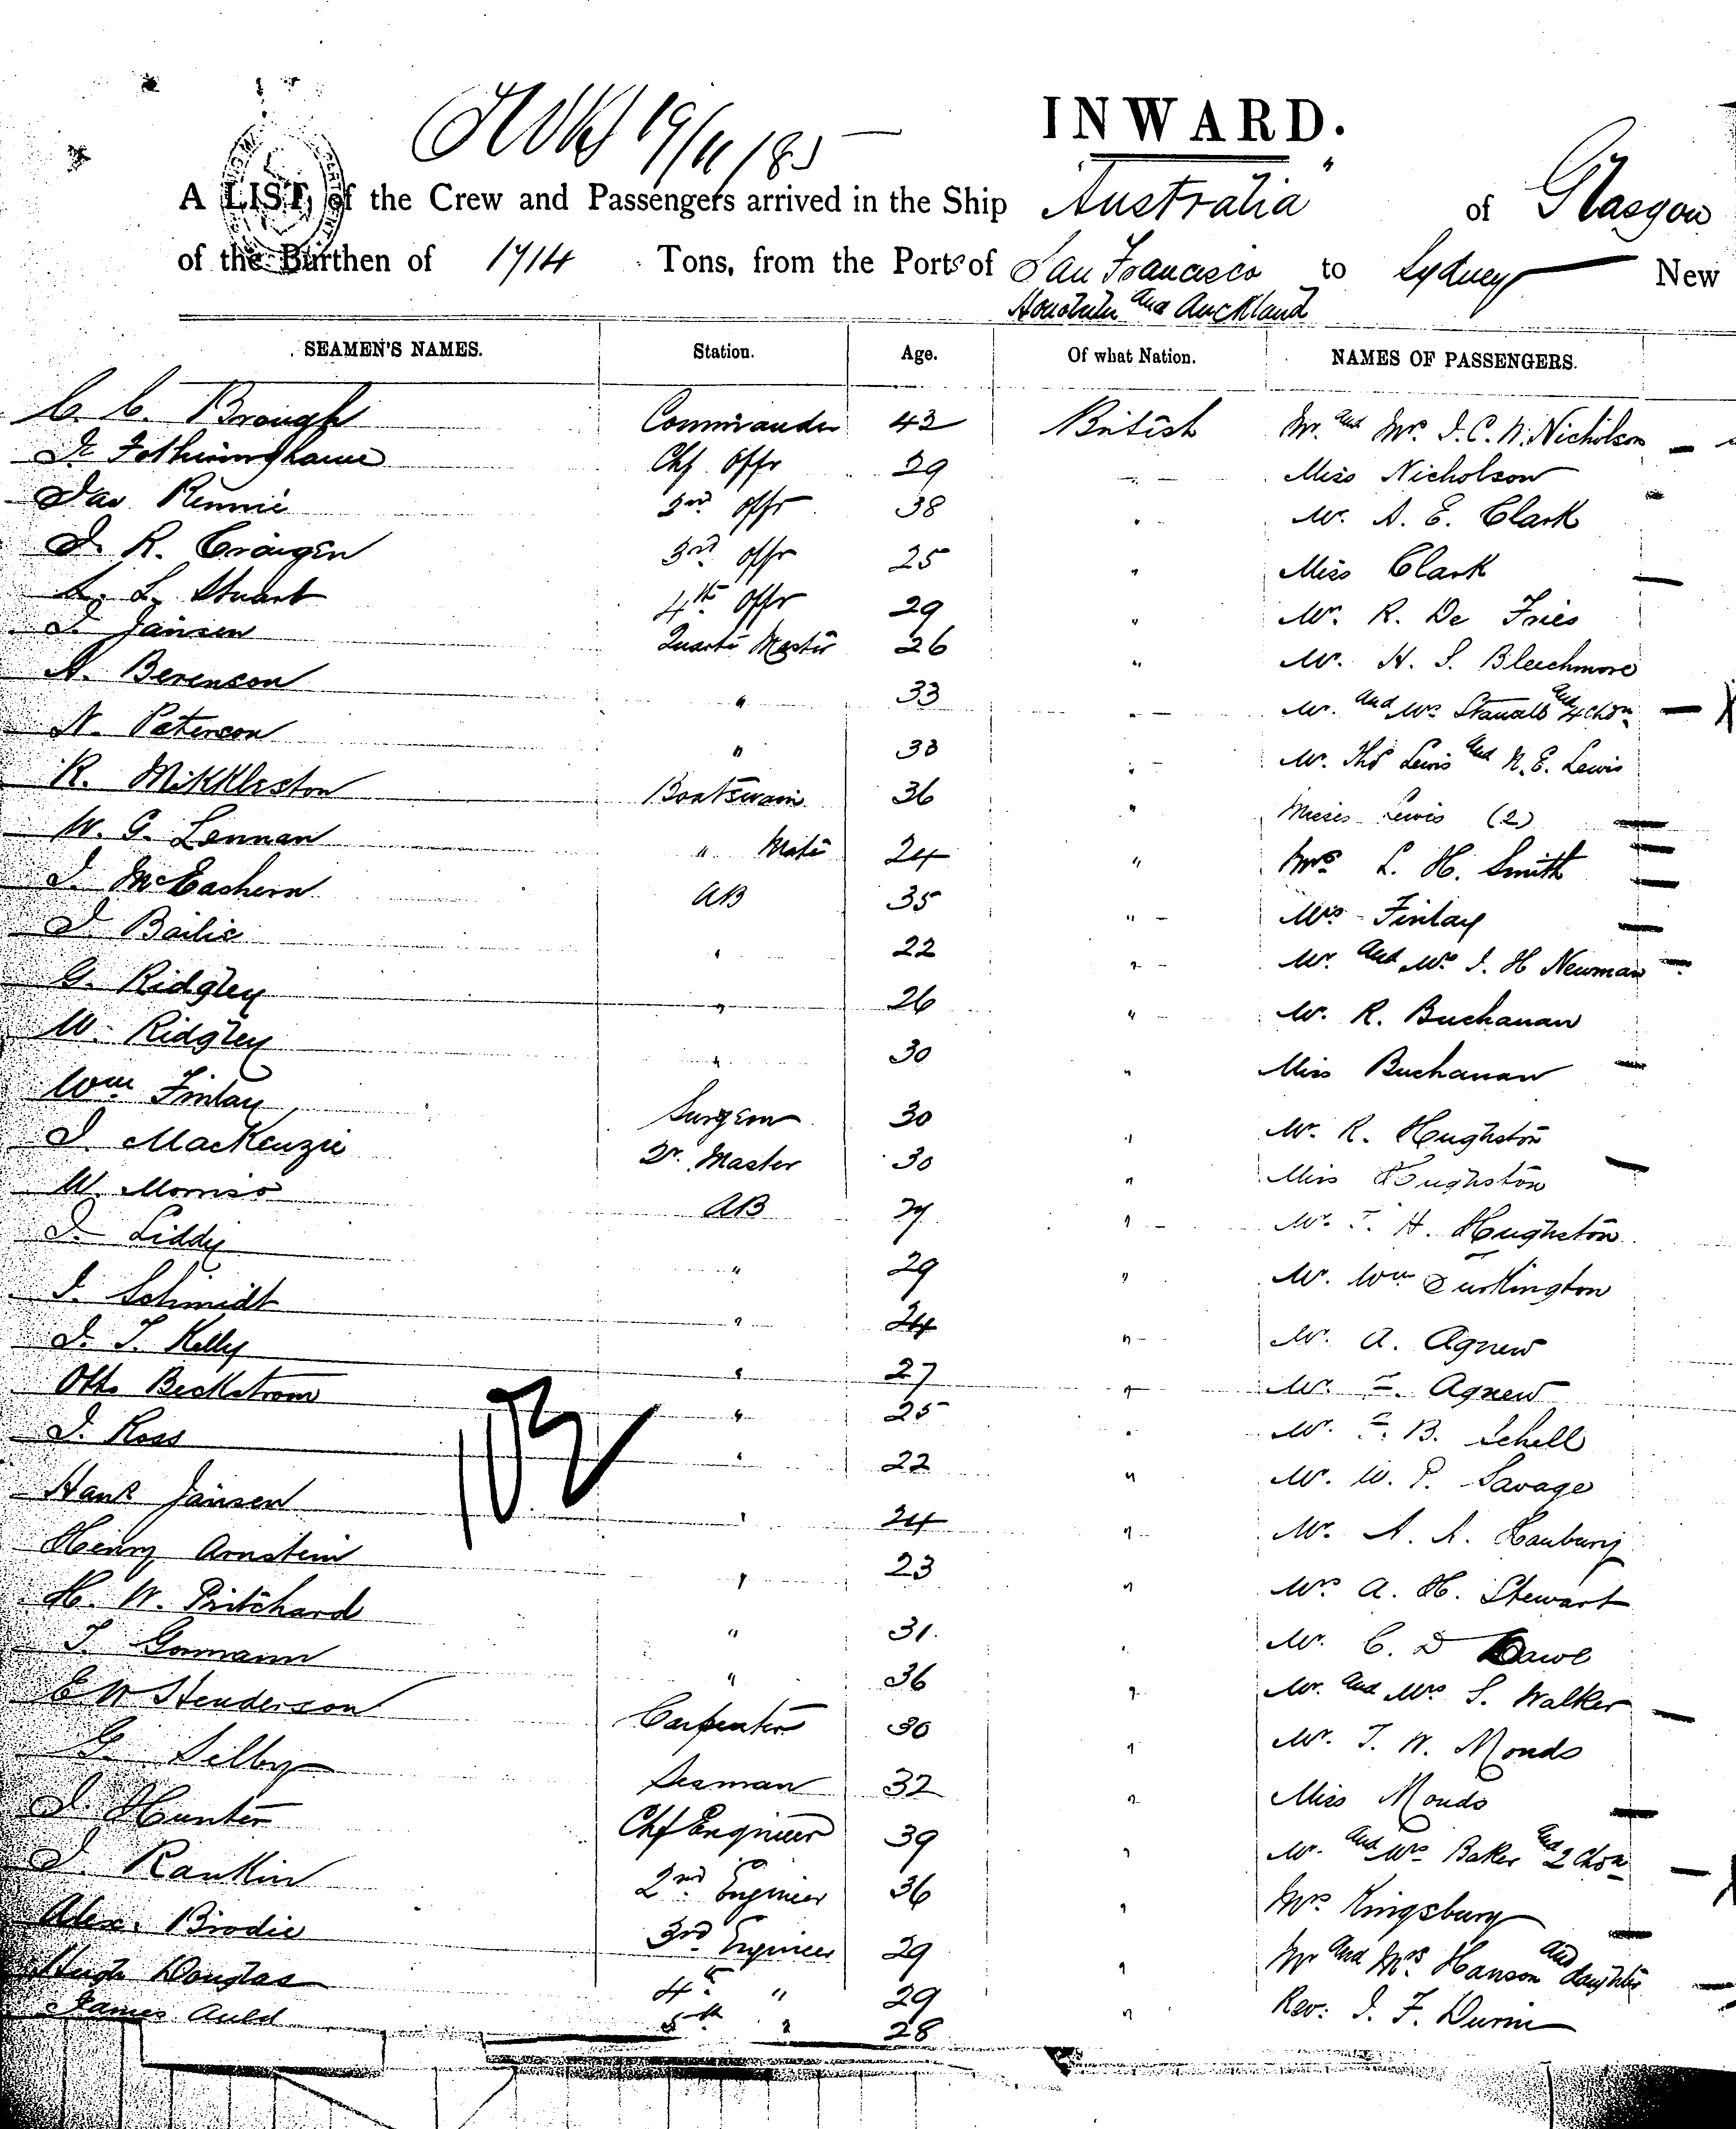 INWARD.
A LIST, of the Crew and Passengers arrived in the Ship "Australia" of Glasgow
of the Burthen of 1714 Tons, from the Ports of San Francisco to Sydney New
Honolulu and Auckland
SEAMEN'S NAMES. Station. Age. Of what Nation. NAMES OF PASSENGERS.
C. C. Brough Commander 43 British Mr. and Mrs. J. C. N. Nicholson
Fotheringhame Chf Offr 29 Miss Nicholson
Jas Rennie Offr 38 Mr. A. E. Clark
J. R. Craigen 3rd Offr 25 " Miss Clark
A. L. Stuart 4th Offr 29 " Mr. R. De Fries
J. Jansen Quarter Master 26 " Mr. H. S. Bleechmore
A. Berenson " 33 " Mr. and Mrs and 4 chdn
N. Peterson " 33 " Mr. Thos Lewis and N. E. Lewis
R. Mikkleston Boatswain 36 " Misses Lewis (2)
W. G. Lennan " Mate 24 " Mrs L. H. Smith
J. McEachern AB 35 " Mrs Finlay
J. Bailie " 22 " Mr. and Mrs J. H Newman
G. Ridgley " 26 " Mr. R. Buchanan
W. Ridgley " 30 " Miss Buchanan
Wm Finlay Surgeon 30 " Mr. R. Hughston
J. MacKenzie Qr. Master 30 " Miss Hughston
W. Morriso AB 27 " Mr. J. H. Hughston
J. Liddy " 29 " Mr. Wm Turkington
J. Schmidt " 24 " Mr. A. Agnew
J. T. Kelly " 27 " Mr. Agnew
Otto Beckstrom " 25 " Mr. F. B. Schell
J. Ross " 22 " Mr. W. P. Savage
Hans Jansen " 24 " Mr. A. A. Hanbury
Henry Arnstein " 23 " Mrs A. H. Stewart
H. W. Pritchard " 31 " Mr. C. D Dawe
T. Gormann " 36 " Mr. and Mrs S. Walker
E W Henderson Carpenter 30 " Mr. T. W. Monds
G. Selby Seaman 32 " Miss Monds
J. Hunter Chf Engineer 39 " Mr. and Mrs Baker and 2 Chdn
J. Rankin 2nd Engineer 36 " Mrs Kingsbury
Alex. Brodie 3rd Engineer 29 " Mr and Mrs. Hanson and daughter
Hugh Douglas 4th " 29 " Rev: J. F.
James Auld 5th " 28